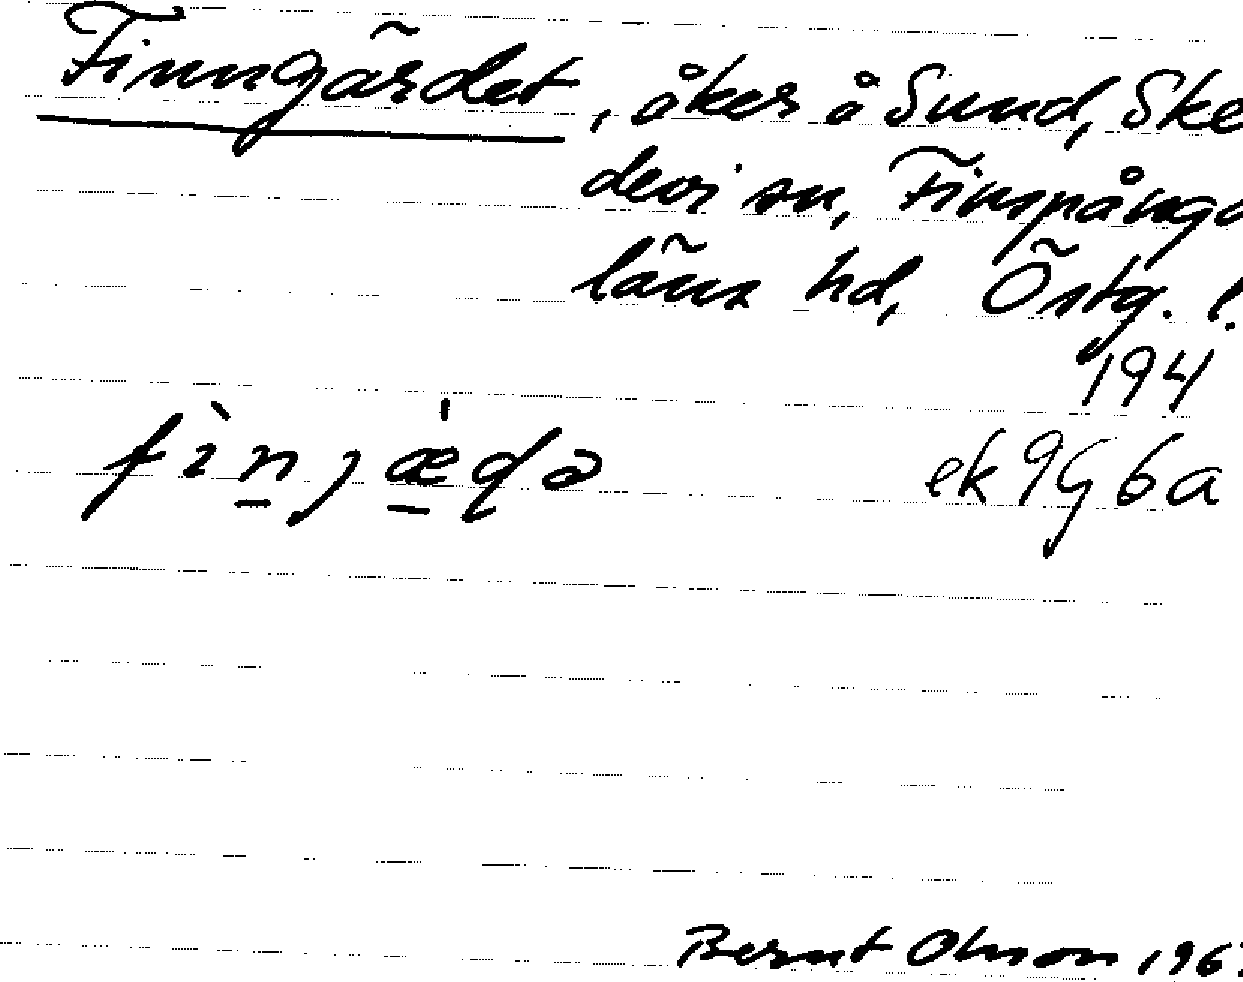 Finngärdet, åker å Sund, Ske
devi sn, Finspånga
läns hd, Östg. l.
194
fìnjæ̍də
ek 9G6a
Bernt Olsson 196